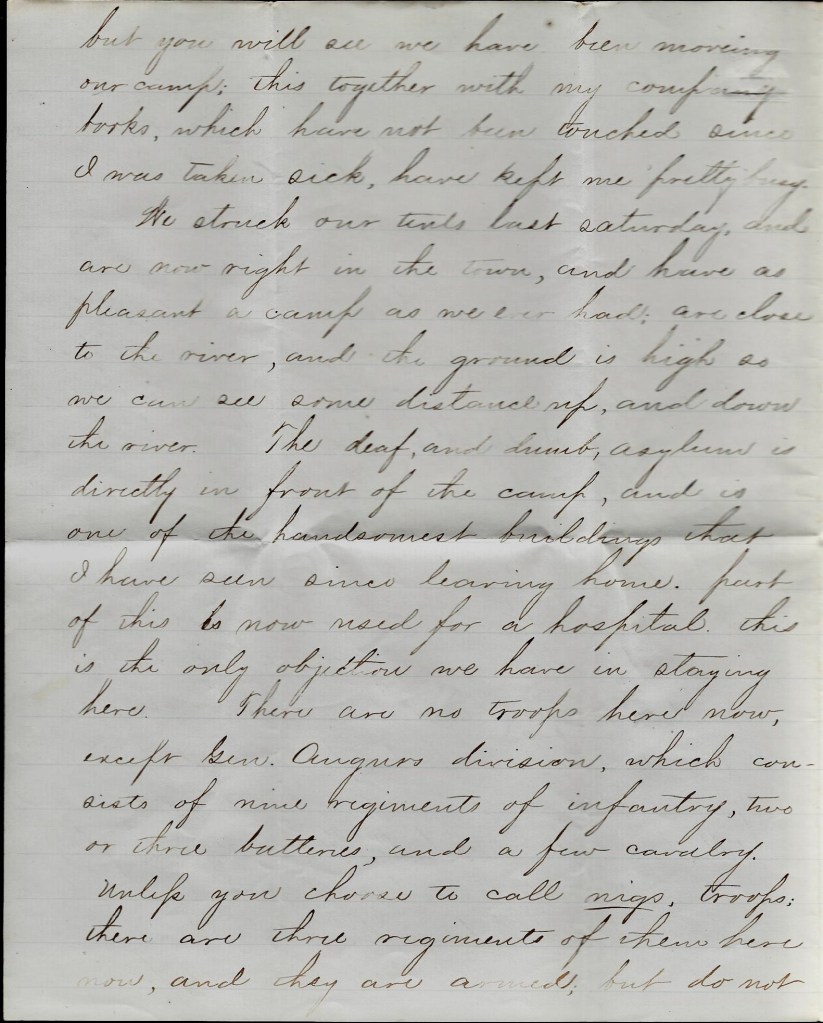 but you will see we have been moveing
our camp; this together with my company
books, which have not been touched since
I was taken sick, have kept me pretty busy.
We struck our tents last saturday, and
are now right in the town, and have as
pleasant a camp as we ever had; are close
to the river, and the ground is high so
we can see some distance up, and down
the river. The deaf, and dumb, asylum is
directly in front of the camp, and is
one of the handsomest buildings that
I have seen since leaving home. part
of this is now used for a hospital. this
is the only objection we have in staying
here. There are no troops here now,
except Gen. Augurs division, which con-
sists of nine regiments of infantry, two
or three batteries, and a few cavalry.
Unless you choose to call nigs, troops;
there are three regiments of them here
now, and they are armed; but do not